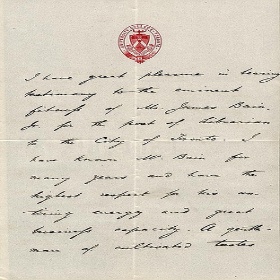 I have great pleasure in bearing
testimony to the eminent
fitness of Mr James Bain
Jr. for the post of Librarian
to the City of Toronto. I
have known Mr. Bain for
many years and have the
highest respect for his un-
tiring energy and great
business capacity. A gentle-
man of cultivated tastes